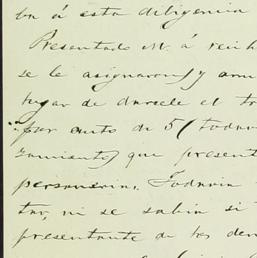 ba á esta diligencia
Presentado M. á
se le asignaron y
lugar de darsele el
por auto de 5 (todavia
que present
personeria. Todavia
tar, ni se sabia si
presentante de los